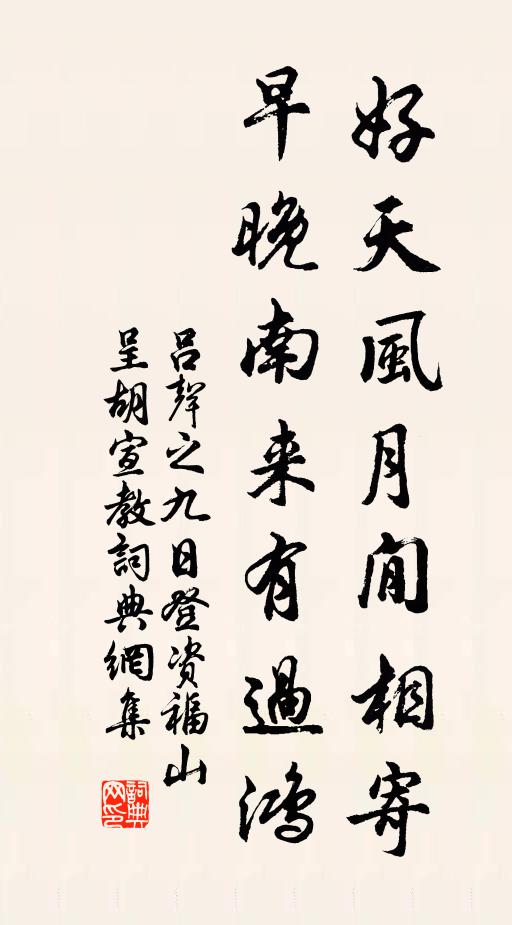 好天風月閒相寄
早晚南来有過鴻
吕聲之九日登资福山
呈胡宣教詞典網集
詞典
网印